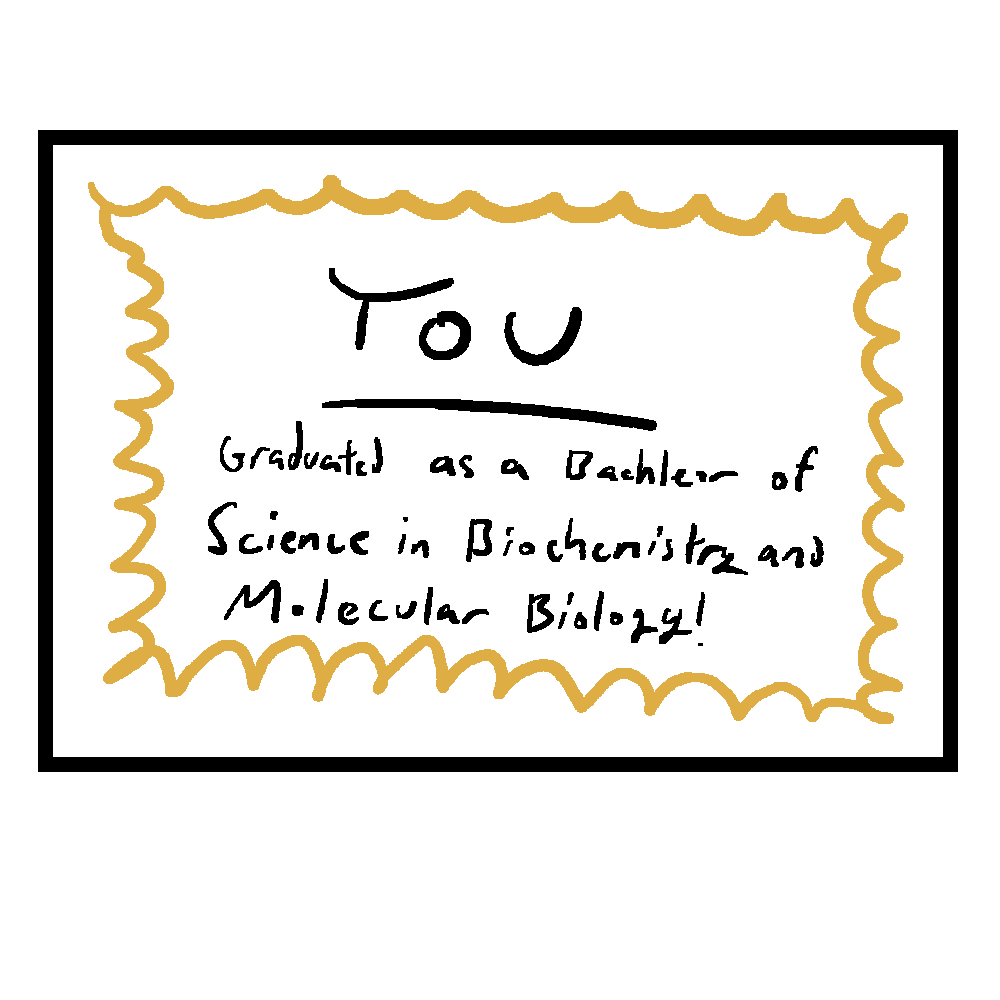 You
Graduated as a Bachleor of
Science in Biochemistry and
Molecular Biology!